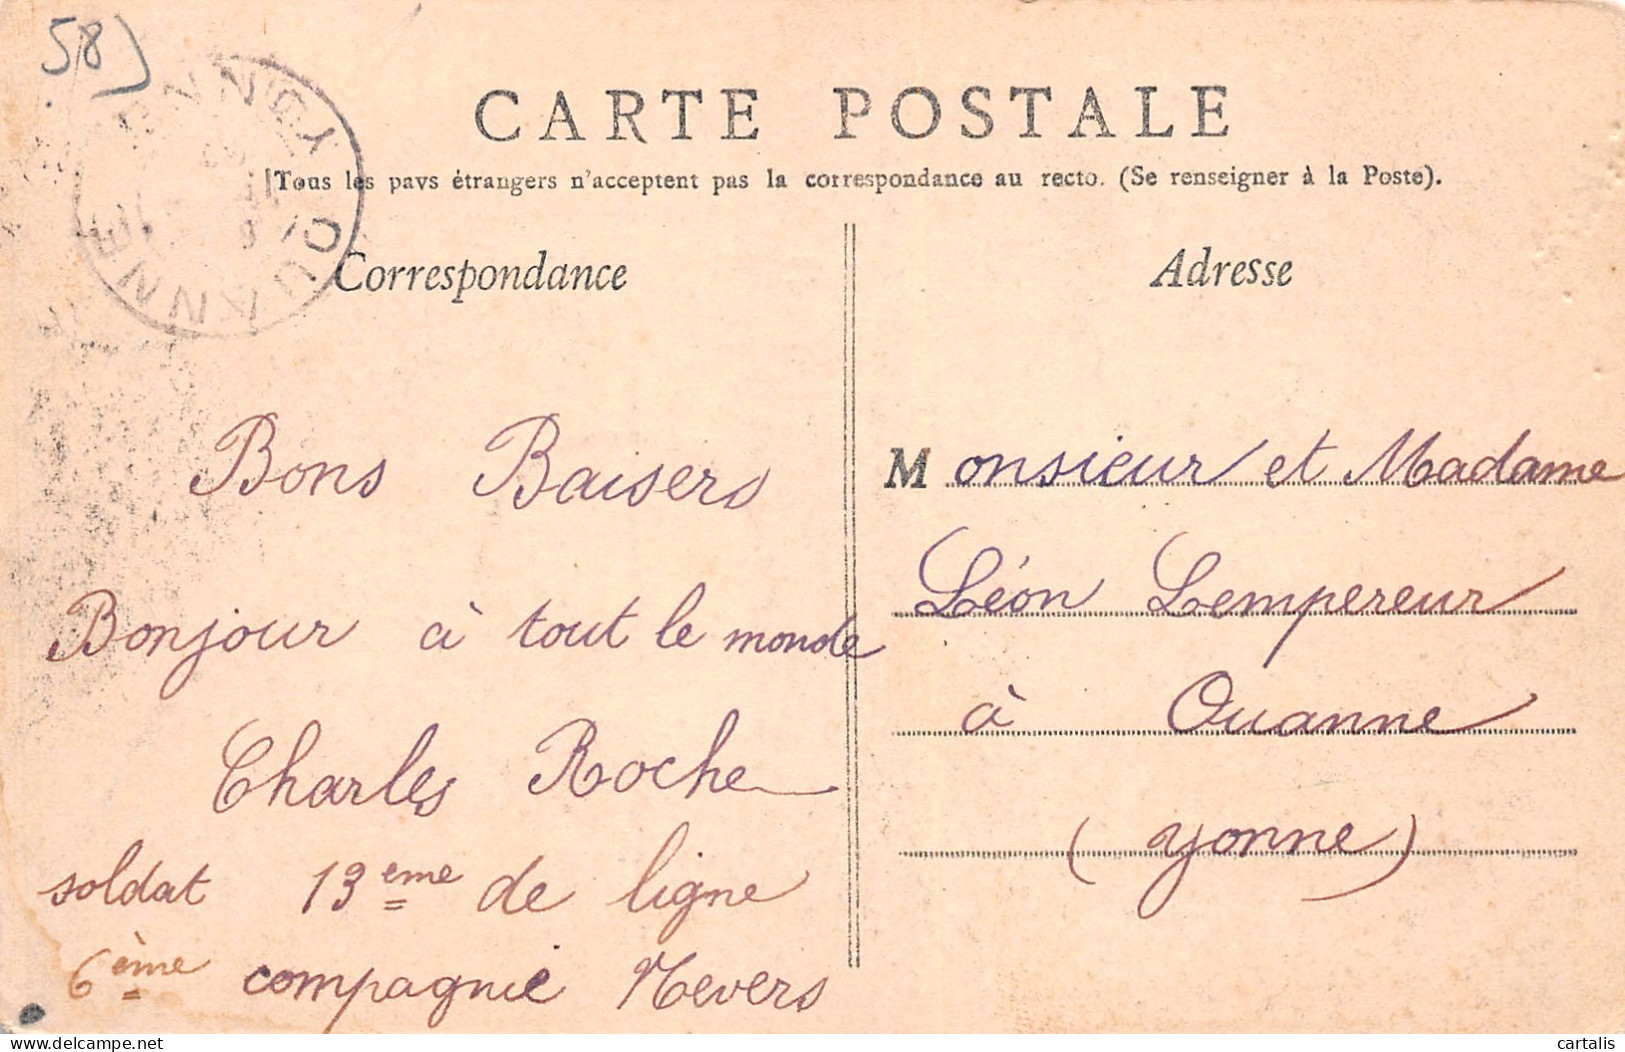 58)
CARTE POSTALE
Tous les pays étrangers n'acceptent pas la correspondance au recto. (Se renseigner à la Poste).
Correspondance
Bons Baisers
Bonjour à tout le monde
Charles Roche
soldat 13eme de ligne
6ème compagnie Nevers
Adresse
Monsieur et Madame
Léon Lempereur
à Ouanne
(Yonne)
delcampe.net
cartalis